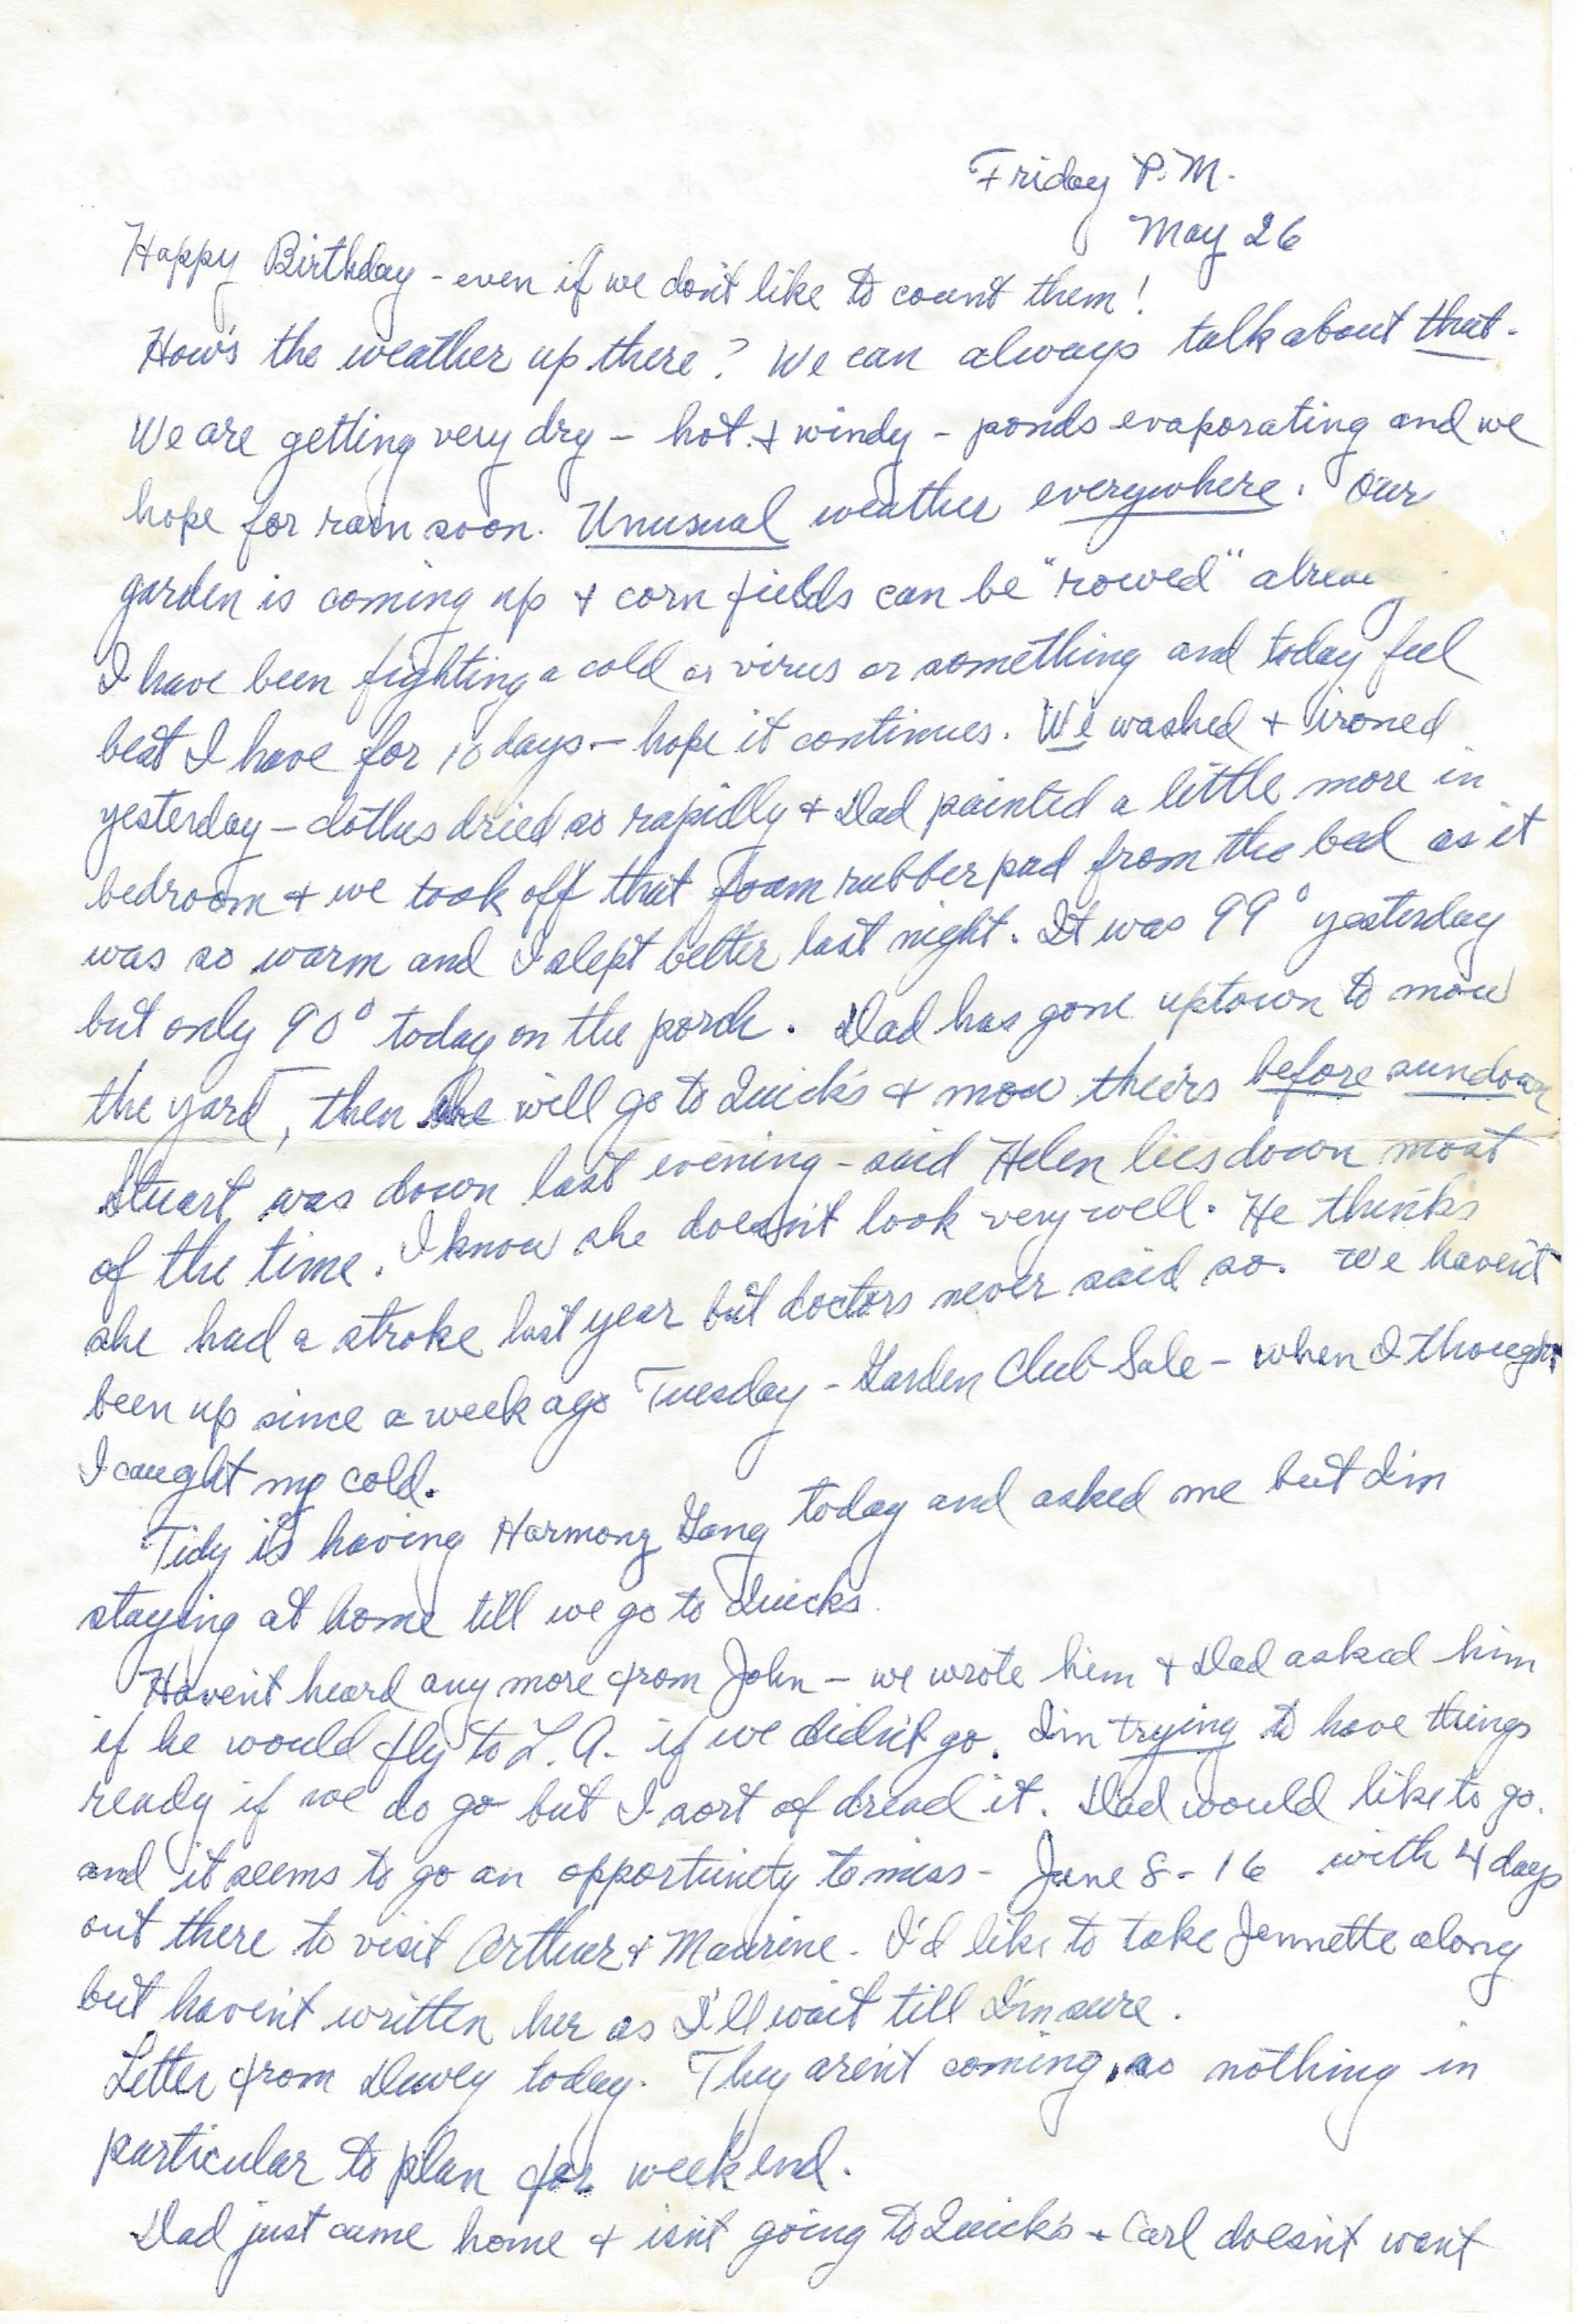 Friday P.M.
May 26
Happy Birthday - even if we don't like to count them!
How's the weather up there? We can always talk about that.
We are getting very dry - hot & windy - ponds evaporating and we
hope for rain soon. Unusual weather everywhere. Our
garden is coming up & corn fields can be "rowed"
I have been fighting a cold or virus or something and today feel
best I have for 10 days - hope it continues. We washed & ironed
yesterday - clothes dried so rapidly & Dad painted a little more in
bedroom & we took off that foam rubber pad from the bed as it
was so warm and I slept better last night. It was 99° yesterday
but only 90° today on the porch. Dad has gone uptown to mow
the yard, then he will go to Quick's & mow theirs before sundown
Stuart was down last evening - said Helen lies down most
of the time. I know she doesn't look very well. He thinks
she had a stroke last year but doctors never said so. We haven't
been up since a week ago Tuesday - Garden Club Sale - when I thought
I caught my cold.
Tidy is having Harmony Gang today and asked me but I'm
staying at home till we go to Quicks.
Haven't heard any more from John - we wrote him & Dad asked him
if he would fly to L.A. if we didn't go. I'm trying to have things
ready if we do go but I sort of dread it. Dad would like to go.
and it seems to go an opportunity to miss - June 8 - 16 with 4 days
out there to visit Arthur & Maurine. I'd like to take Jennette along
but haven't written her as I'll wait till I'm sure.
Letter from Dewey today. They aren't coming, so nothing in
particular to plan for week end.
Dad just came home & isn't going to Quick's - Carl doesn't want